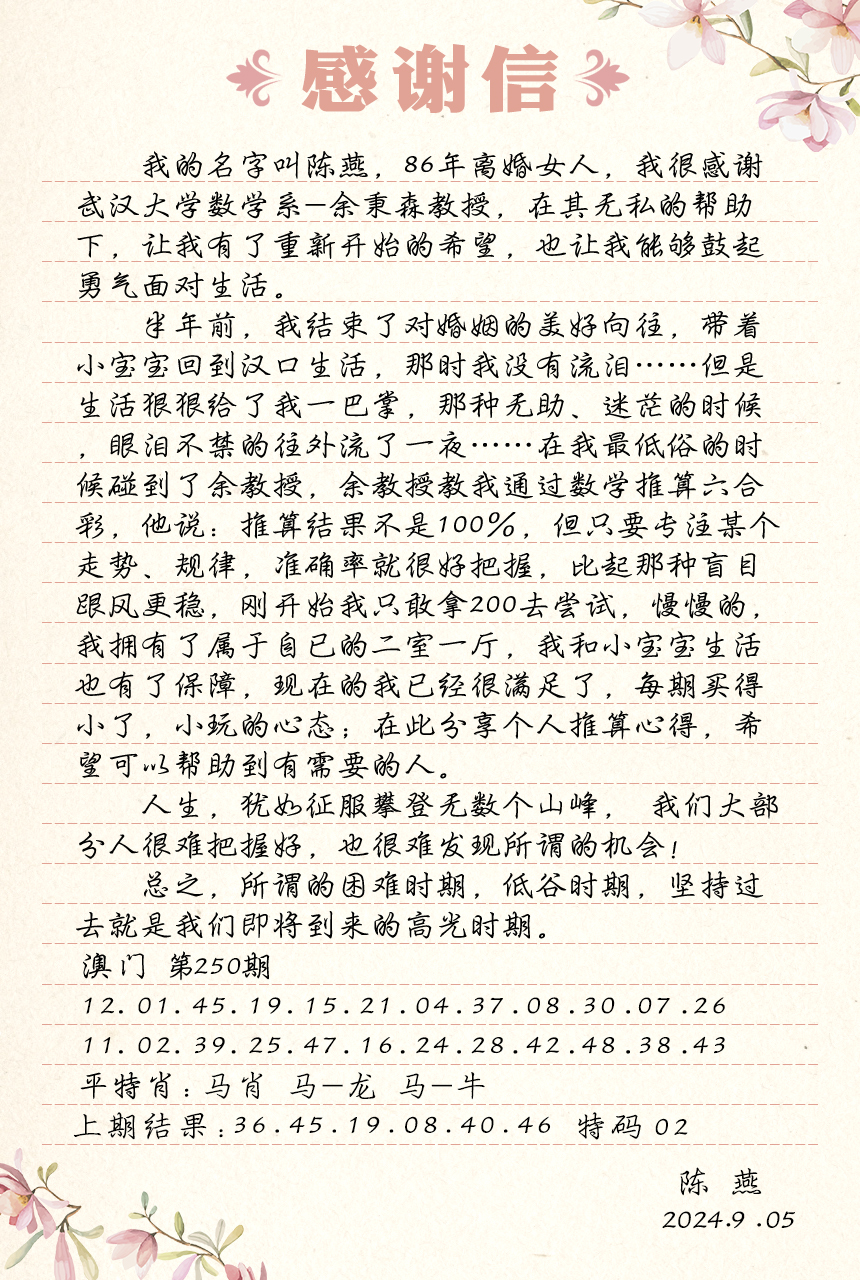 感谢信
我的名字叫陈燕，86年离婚女人，我很感谢
武汉大学数学系—余秉森教授，在其无私的帮助
下，让我有了重新开始的希望，也让我能够鼓起
勇气面对生活。
半年前，我结束了对婚姻的美好向往，带着
小宝宝回到汉口生活，那时我没有流泪……但是
生活狠狠给了我一巴掌，那种无助、迷茫的时候
，眼泪不禁的往外流了一夜……在我最低俗的时
候碰到了余教授，余教授教我通过数学推算六合
彩，他说：推算结果不是100%，但只要专注某个
走势、规律，准确率就很好把握，比起那种盲目
跟风更稳，刚开始我只敢拿200去尝试，慢慢的，
我拥有了属于自已的二室一厅，我和小宝宝生活
也有了保障，现在的我已经很满足了，每期买得
小了，小玩的心态；在此分享个人推算心得，希
望可以帮助到有需要的人。
人生，犹如征服攀登无数个山峰， 我们大部
分人很难把握好，也很难发现所谓的机会！
总之，所谓的困难时期，低谷时期，坚持过
去就是我们即将到来的高光时期。
澳门 第250期
12.01.45.19.15.21.04.37.08.30.07.26
11.02.39.25.47.16.24.28.42.48.38.43
平特肖：马肖 马—龙 马—牛
上期结果：36.45.19.08.40.46 特码 02
陈 燕
2024.9.05